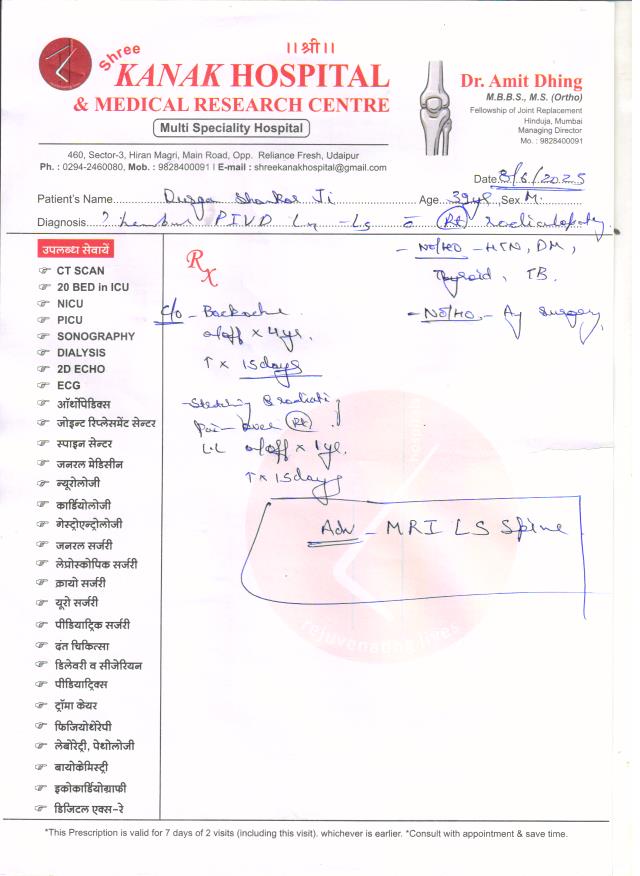 Shree
।।श्री।।
KANAK HOSPITAL
& MEDICAL RESEARCH CENTRE
Multi Speciality Hospital
460, Sector-3, Hiran Magri, Main Road, Opp. Reliance Fresh, Udaipur
Ph. : 0294-2460080, Mob. : 9828400091 I E-mail : shreekanakhospital@gmail.com
Dr. Amit Dhing
M.B.B.S., M.S. (Ortho)
Fellowship of Joint Replacement
Hinduja, Mumbai
Managing Director
Mo. : 9828400091
Date 8/6/2025
Patient's Name Durga Shankar Ji Age 39yr Sex M.
Diagnosis ? PIVD L4-L5 c̄ Rt radiculopathy.
उपलब्ध सेवायें
CT SCAN
20 BED in ICU
NICU
PICU
SONOGRAPHY
DIALYSIS
2D ECHO
ECG
ऑर्थोपेडिक्स
जोइन्ट रिप्लेसमेंट सेन्टर
स्पाइन सेन्टर
जनरल मेडिसीन
न्यूरोलोजी
कार्डियोलोजी
गेस्ट्रोएन्ट्रोलोजी
जनरल सर्जरी
लेप्रोस्कोपिक सर्जरी
क्रायो सर्जरी
यूरो सर्जरी
पीडियाट्रिक सर्जरी
दंत चिकित्सा
डिलेवरी व सीजेरियन
पीडियाट्रिक्स
ट्रॉमा केयर
फिजियोथेरेपी
लेबोरेट्री, पेथोलोजी
बायोकेमिस्ट्री
इकोकार्डियोग्राफी
डिजिटल एक्स-रे
Rx
- No/H/O - HTN, DM,
Thyroid, TB.
- No/H/O - Any surgery,
C/O - Backache
on/off x 4yr.
↑ x 15days
- Stretching & radiating
pain over Rt
LL on/off x 1yr.
↑ x 15days
Adv - MRI LS Spine
rejuvenating lives
*This Prescription is valid for 7 days of 2 visits (including this visit). whichever is earlier. *Consult with appointment & save time.